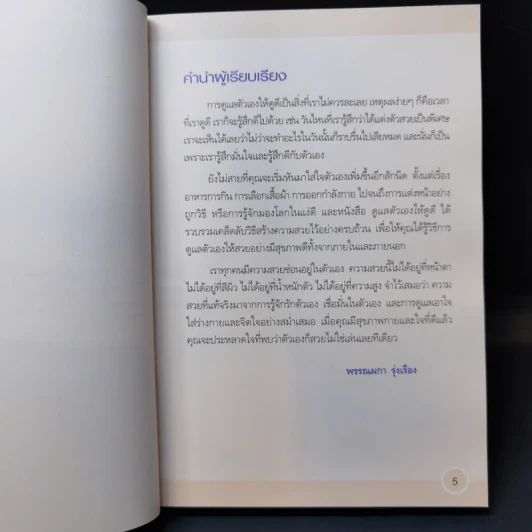 คำนำผู้เรียบเรียง
การดูแลตัวเองให้ดูดีเป็นสิ่งที่เราไม่ควรละเลย เหตุผลง่ายๆ ก็คือเวลา
ที่เราดูดี เราก็จะรู้สึกดีไปด้วย เช่น วันไหนที่เรารู้สึกว่าได้แต่งตัวสวยเป็นพิเศษ
เราจะเห็นได้เลยว่าไม่ว่าจะทำอะไรในวันนั้นก็ราบรื่นไปเสียหมด และนั่นก็เป็น
เพราะเรารู้สึกมั่นใจและรู้สึกดีกับตัวเอง
ยังไม่สายที่คุณจะเริ่มหันมาใส่ใจตัวเองเพิ่มขึ้นอีกสักนิด ตั้งแต่เรื่อง
อาหารการกิน การเลือกเสื้อผ้า การออกกำลังกาย ไปจนถึงการแต่งหน้าอย่าง
ถูกวิธี หรือการรู้จักมองโลกในแง่ดี และหนังสือ ดูแลตัวเองให้ดูดี ได้
รวบรวมเคล็ดลับวิธีสร้างความสวยไว้อย่างครบถ้วน เพื่อให้คุณได้รู้วิธีการ
ดูแลตัวเองให้สวยอย่างมีสุขภาพดีทั้งจากภายในและภายนอก
เราทุกคนมีความสวยซ่อนอยู่ในตัวเอง ความสวยนี้ไม่ได้อยู่ที่หน้าตา
ไม่ได้อยู่ที่สีผิว ไม่ได้อยู่ที่น้ำหนักตัว ไม่ได้อยู่ที่ความสูง จำไว้เสมอว่า ความ
สวยที่แท้จริงมาจากการรู้จักรักตัวเอง เชื่อมั่นในตัวเอง และการดูแลเอาใจ
ใส่ร่างกายและจิตใจอย่างสม่ำเสมอ เมื่อคุณมีสุขภาพกายและใจที่ดีแล้ว
คุณจะประหลาดใจที่พบว่าตัวเองก็สวยไม่ใช่เล่นเลยทีเดียว
พรรณผกา รุ่งเรือง
5